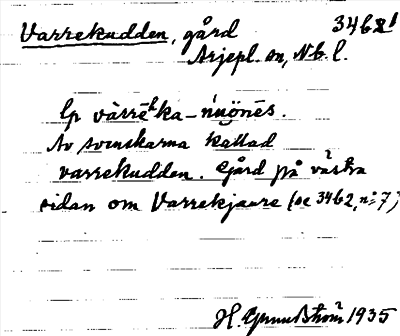 Varrekudden, gård 3461
Arjepl. sn, Nb. l.
lp vàrrēʰka-nı̣ùönēs.
Av svenskarna kallad
varrekudden. Gård på västra
sidan om Varrekjaure (se 3462, n:7)
H. Grundström 1935